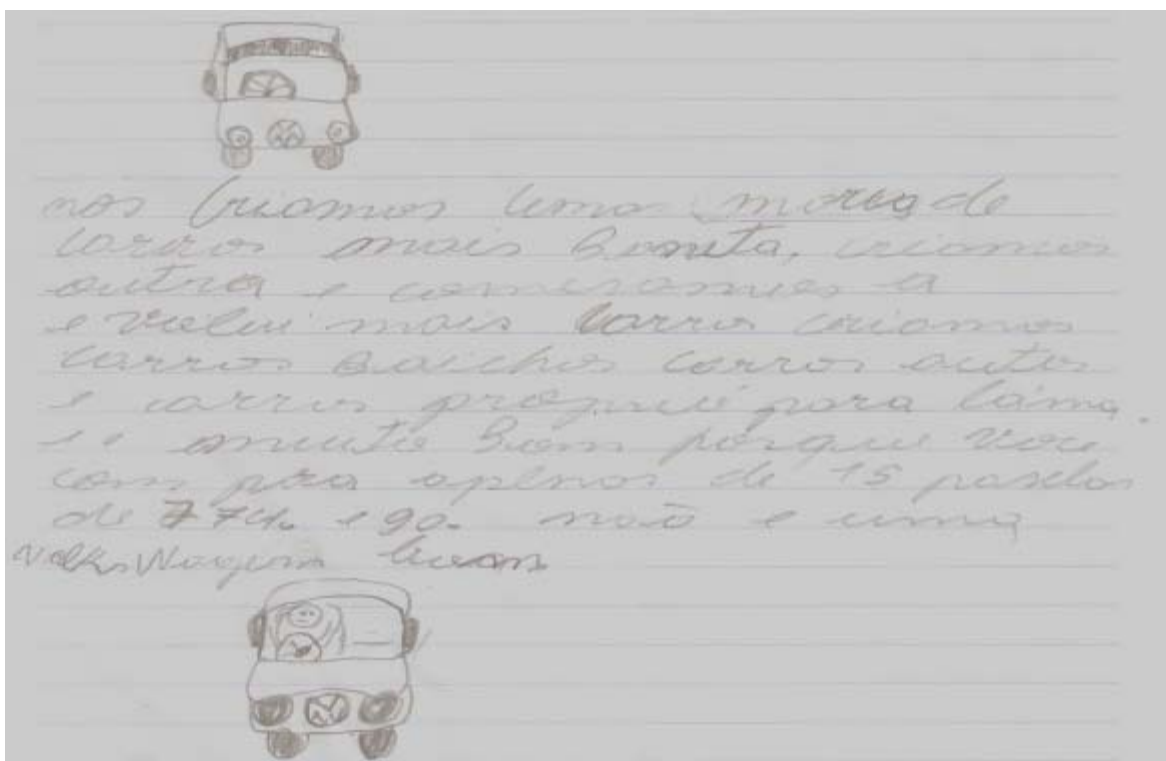 nos Criamos uma marca de
carros mais Bonita, criamos
outra e comesamos a
evolui mais carros criamos
carros Baichos carros autos
e carros propriu para lama.
e muito Bom porque voce
com pra apenas de 15 paselas
de 774. e 90. não e uma
VolksWagem